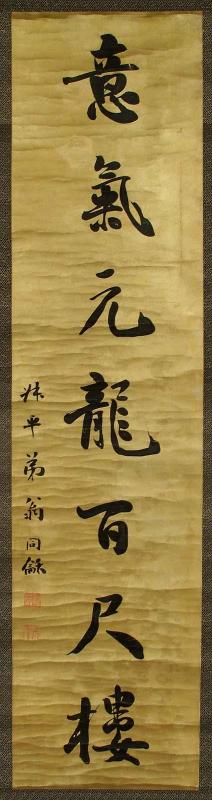 意氣元龍百尺樓
叔平弟翁同龢